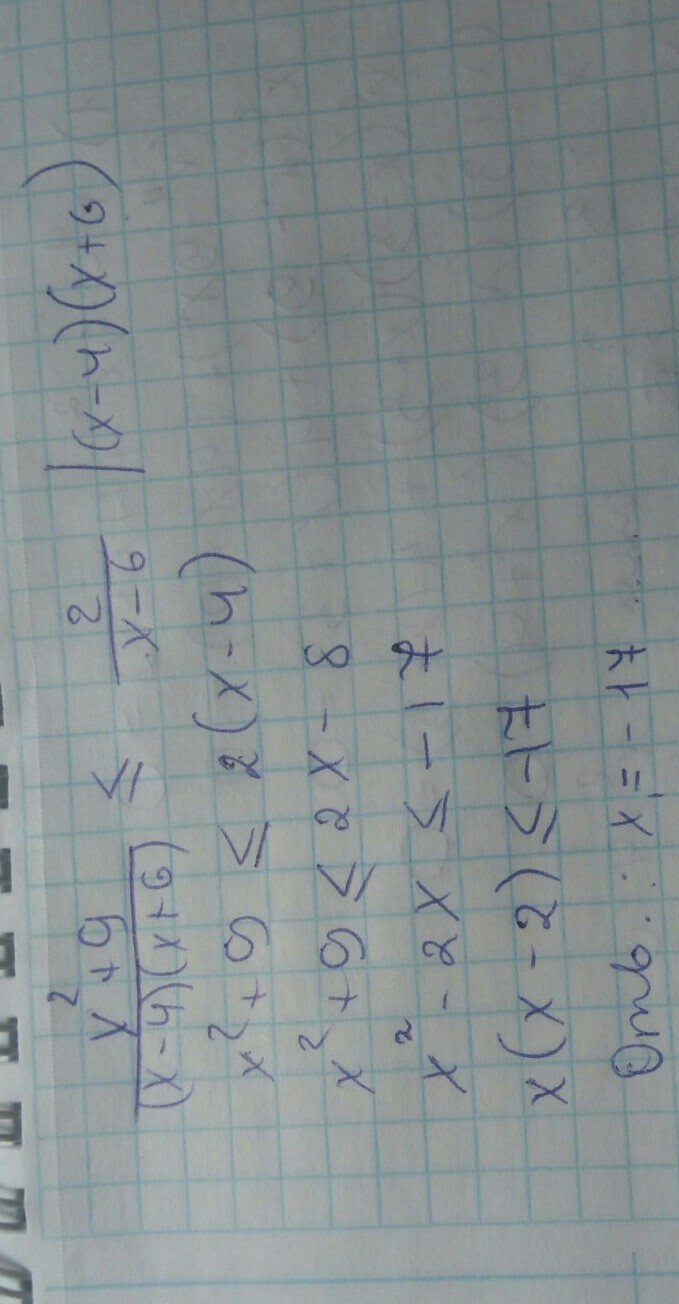 x²+9/(x-4)(x+6) ≤ 2/x-6 |(x-4)(x+6)
x²+9 ≤ 2(x-4)
x²+9 ≤ 2x-8
x²-2x ≤ -17
x(x-2) ≤ -17
Отв.: x₁=-17 .....